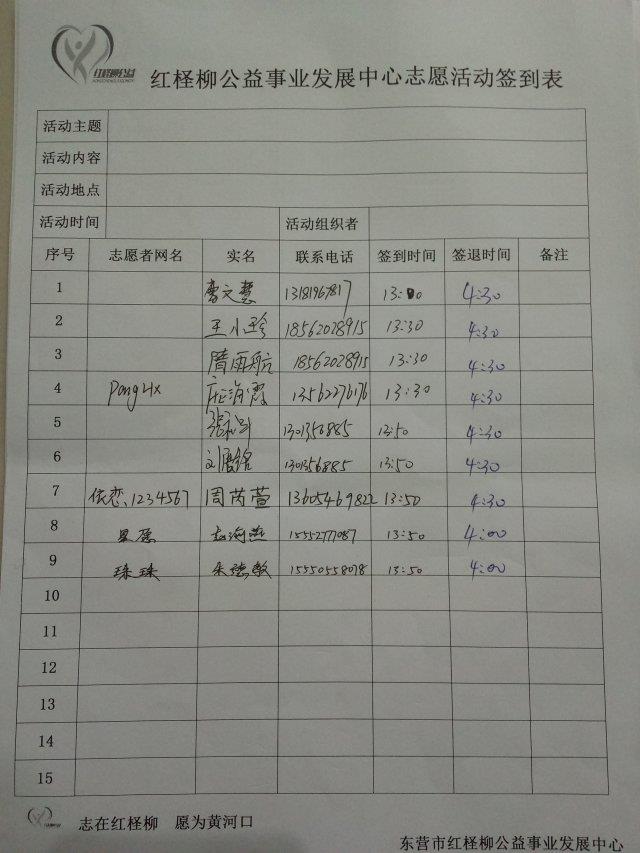 红柽柳公益
红柽柳公益事业发展中心志愿活动签到表
活动主题
活动内容
活动地点
活动时间 活动组织者
序号 志愿者网名 实名 联系电话 签到时间 签退时间 备注
1 曹文慧 13181967817 13:00 4:30
2 王小玲 18562028915 13:30 4:30
3 隋雨航 18562028915 13:30 4:30
4 海霞 13562276176 13:30 4:30
5 1301356885 13:50 4:30
6 刘 130156885 13:50 4:30
7 依恋、1234567 周芮萱 13605469822 13:50 4:30
8 星愿 赵海燕 15552777087 13:50 4:00
9 珠珠 朱德敏 15550558078 13:50 4:00
10
11
12
13
14
15
志在红柽柳 愿为黄河口
东营市红柽柳公益事业发展中心